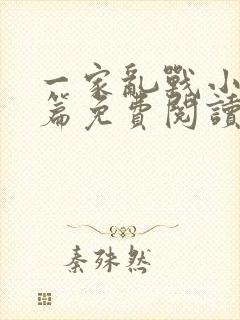 一家亂戰小
篇免費閱讀
秦殊然